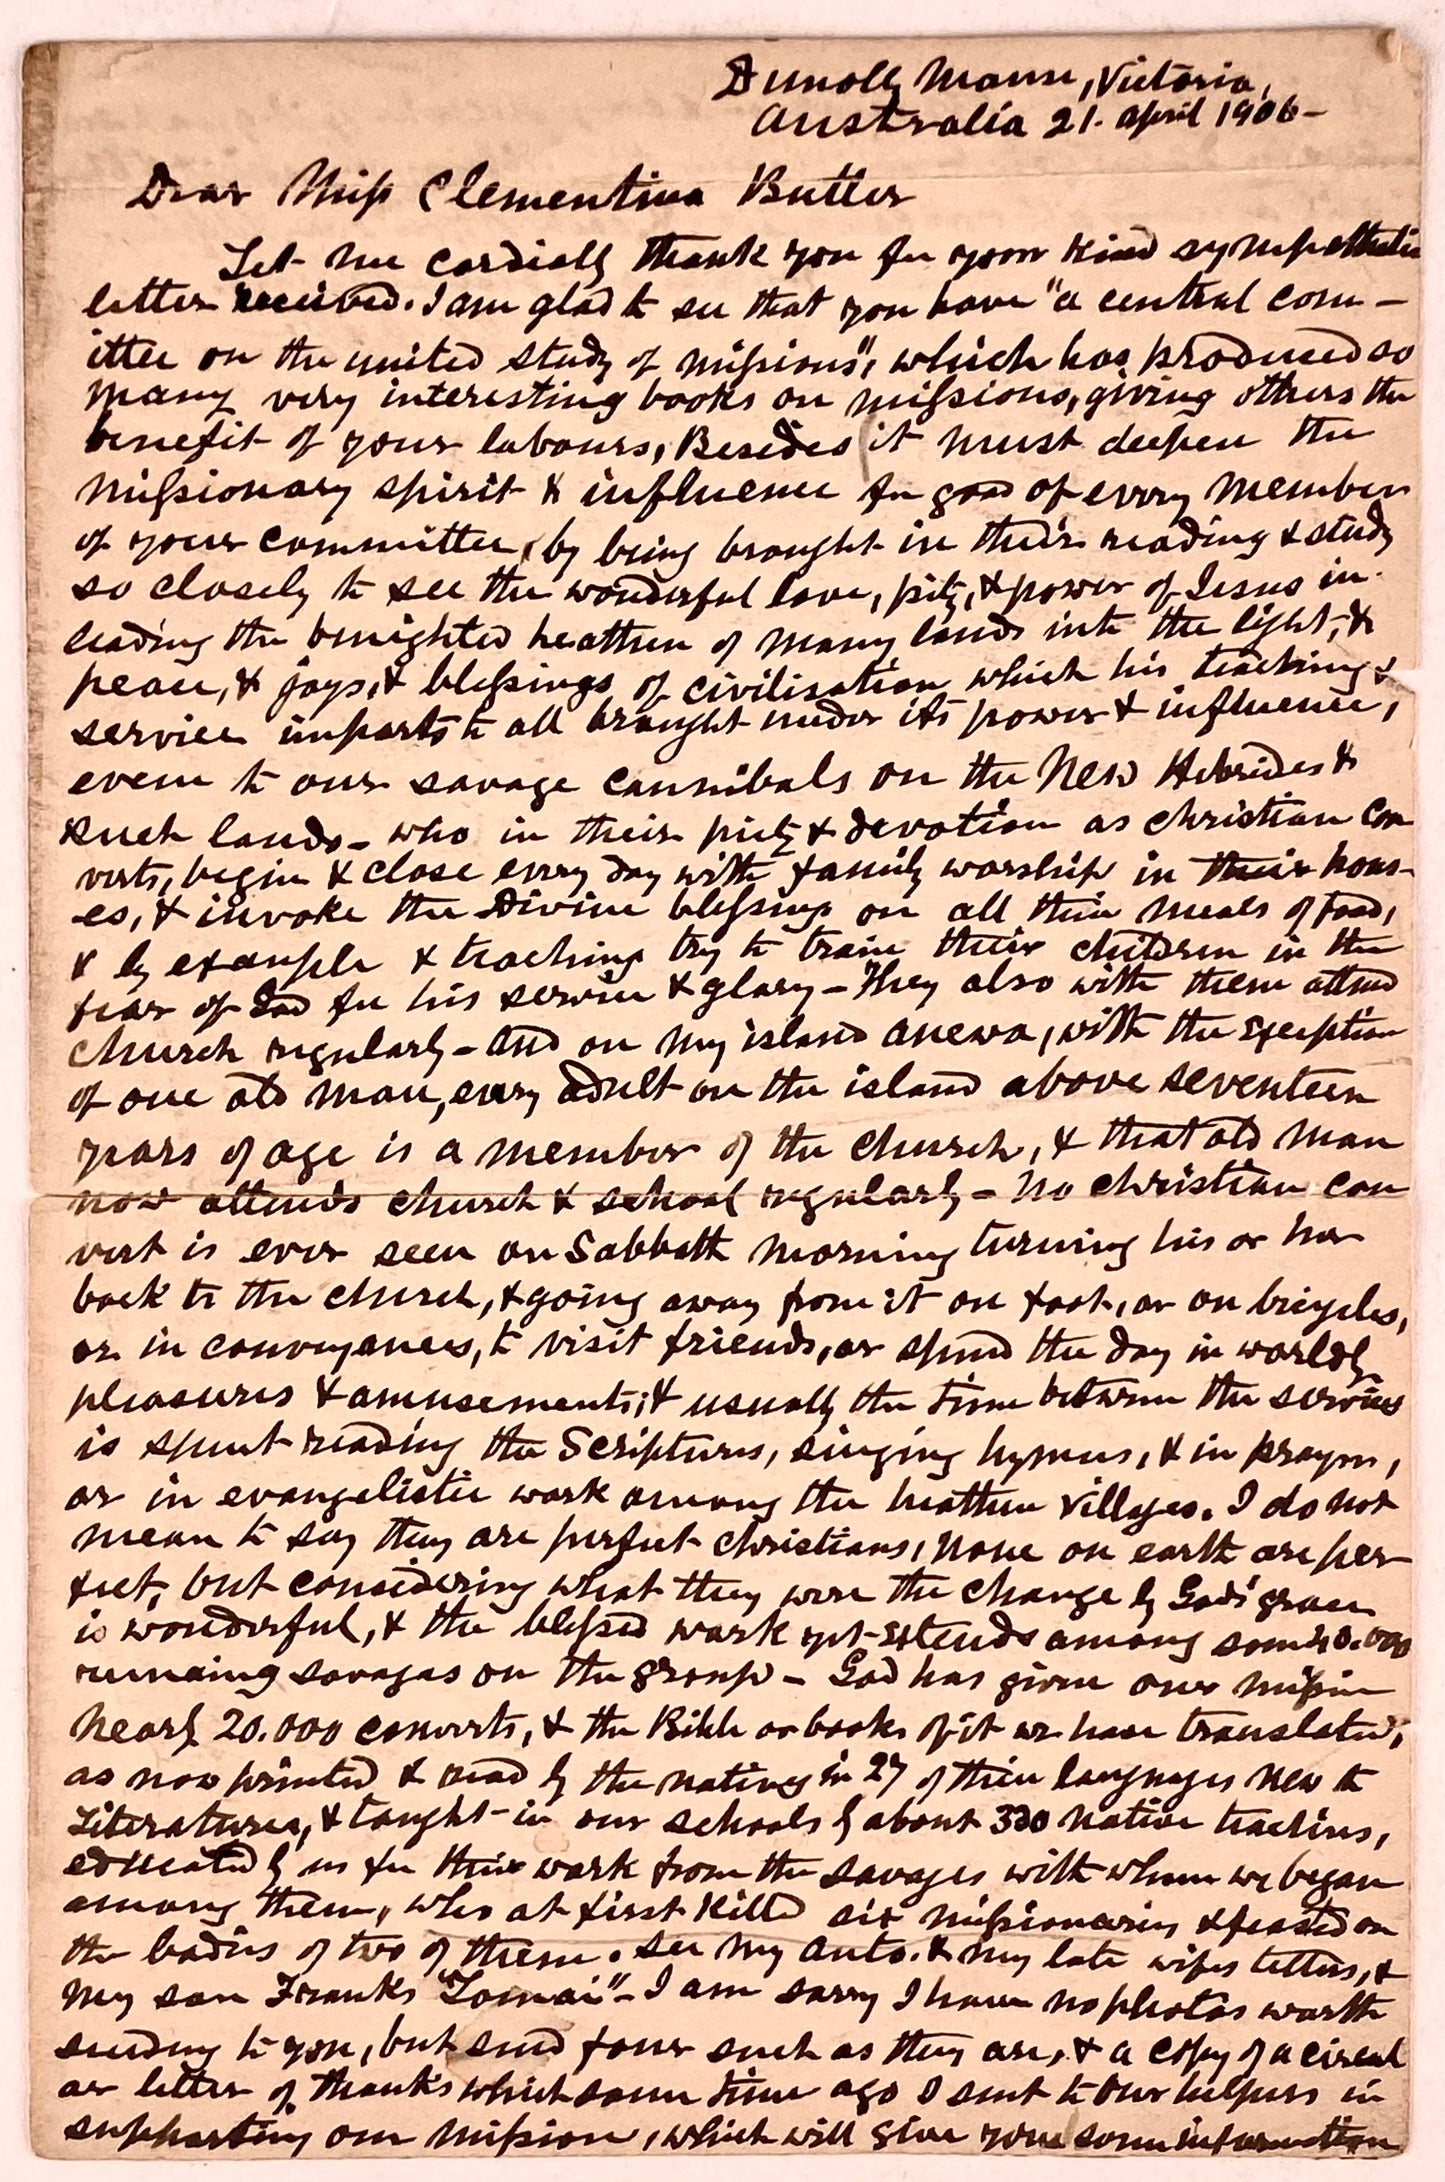 Dunolly Manse, Victoria,
Australia 21. April 1906 -
Dear Miss Clementina Butler
Let me cordially thank you for your kind sympathetic
letter received. I am glad to see that you have "a central com -
ittee on the united study of missions", which has produced so
many very interesting books on missions, giving others the
benefit of your labours, Besides it must deepen the
missionary spirit & influence for good of every member
of your committee, by being brought in their reading & study
so closely to see the wonderful love, pity, & power of Jesus in
leading the benighted heathen of many lands into the light, &
peace, & joys, & blessings of civilisation which his teaching &
service imparts to all brought under its power & influence,
even to our savage cannibals on the New Hebrides &
such lands - who in their piety & devotion as Christian con
verts, begin & close every day with family worship in their hous-
es, & invoke the Divine blessing on all their meals of food,
& by example & teaching try to train their children in the
fear of God for his service & glory - They also with them attend
church regularly - and on my island Aniwa, with the exception
of one old man, every adult on the island above seventeen
years of age is a member of the church, & that old man
now attends church & school regularly - No Christian con
vert is ever seen on Sabbath morning turning his or her
back to the church, & going away from it on foot, or on bicycles,
or in conveyances, to visit friends, or spend the day in worldly
pleasures & amusements; & usually the time between the services
is spent reading the Scriptures, singing hymns, & in prayer,
or in evangelistic work among the heathen villages. I do not
mean to say they are perfect Christians, none on earth are per-
fect, but considering what they were the change by God's grace
is wonderful, & the blessed work yet extends among some 40.000
remaing savages on the group - God has given our mission
nearly 20.000 converts, & the Bible or books of it we have translated,
as now printed & read by the natives in 27 of their languages new to
Literatures, & taught in our schools by about 330 native teachers,
educated by us for their work from the savages with whom we began
among them, who at first killed six missionaries & feasted on
the bodies of two of them. See my Auto. & my late wifes letters, &
my son Franks "Lomai" - I am sorry I have no photos worth
sending to you, but send four such as they are, & a copy of a circul
ar letter of thanks which some time ago I sent to our helpers in
supporting our mission, which will give you some information